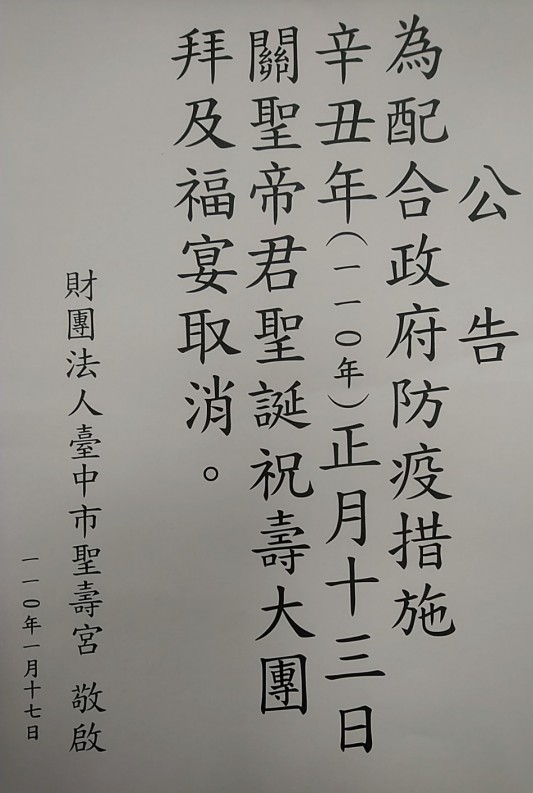 公告
為配合政府防疫措施
辛丑年(一一〇年)正月十三日
關聖帝君聖誕祝壽大團
拜及福宴取消。
財團法人臺中市聖壽宮 敬啟
一一〇年一月十七日